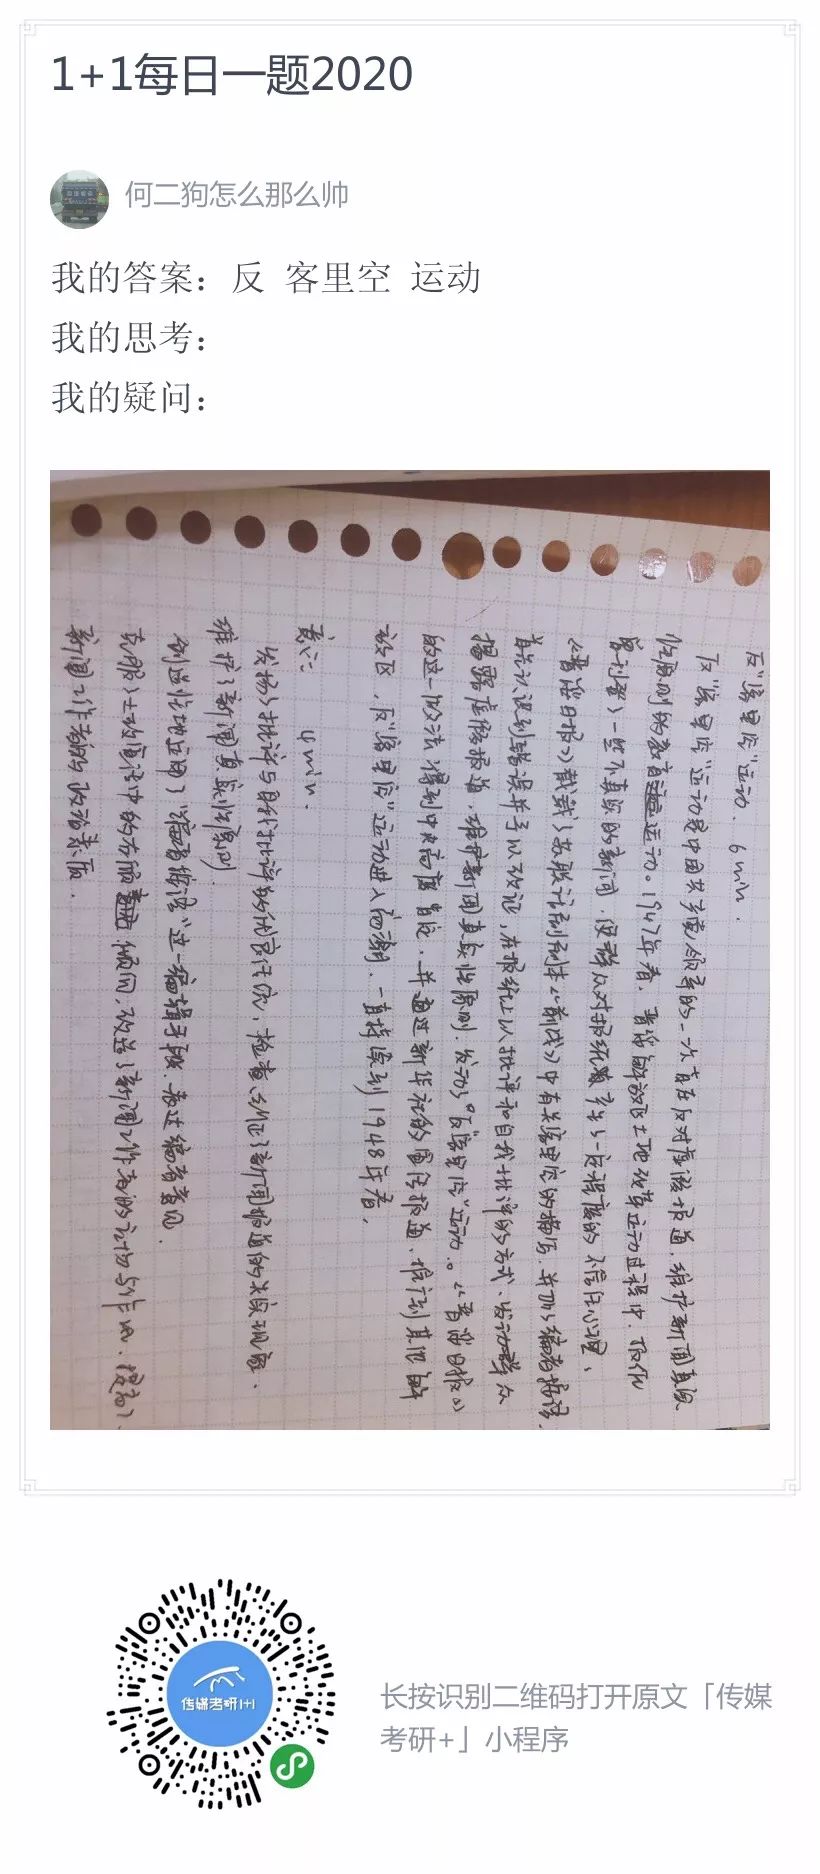 1+1每日一题2020
何二狗怎么那么帅
我的答案：反 客里空 运动
我的思考：
我的疑问：
反"客里空"运动． 6min．
反"客里空"运动是中国共产党领导的一次旨在反对虚假报道．维护新闻真实
性原则的教育运动。1947年春．晋绥解放区土地改革运动过程中．报纸
客刊登了一些不真实的新闻．使群众对报纸产生了一定程度的不信任心理，
《晋绥日报》载了苏联话剧剧本《前线》中有关客里空的描写．并加了编者按语．
意识到错误并予以改正．在报纸上以批评和自我批评的方式．发动群众
揭露虚假报道．维护新闻真实性原则．发动了"反客里空"运动。《晋绥日报》
的这一做法得到中央高度肯定．并通过新华社的宣传报道．推行到其他解
放区．反"客里空"运动进入高潮．一直持续到1948年春．
意义： 4min．
发扬了批评与自我批评的优良作风，检查纠正了新闻报道的失实现象．
维护了新闻真实性原则．
创造性地运用了"编者按语"这一编辑手段．表达编者意见．
克服了土改宣传中的右倾倾向．改造了新闻工作者的立场与作风．提高了
新闻工作者的政治素质．
传媒考研1+1
长按识别二维码打开原文「传媒
考研+」小程序